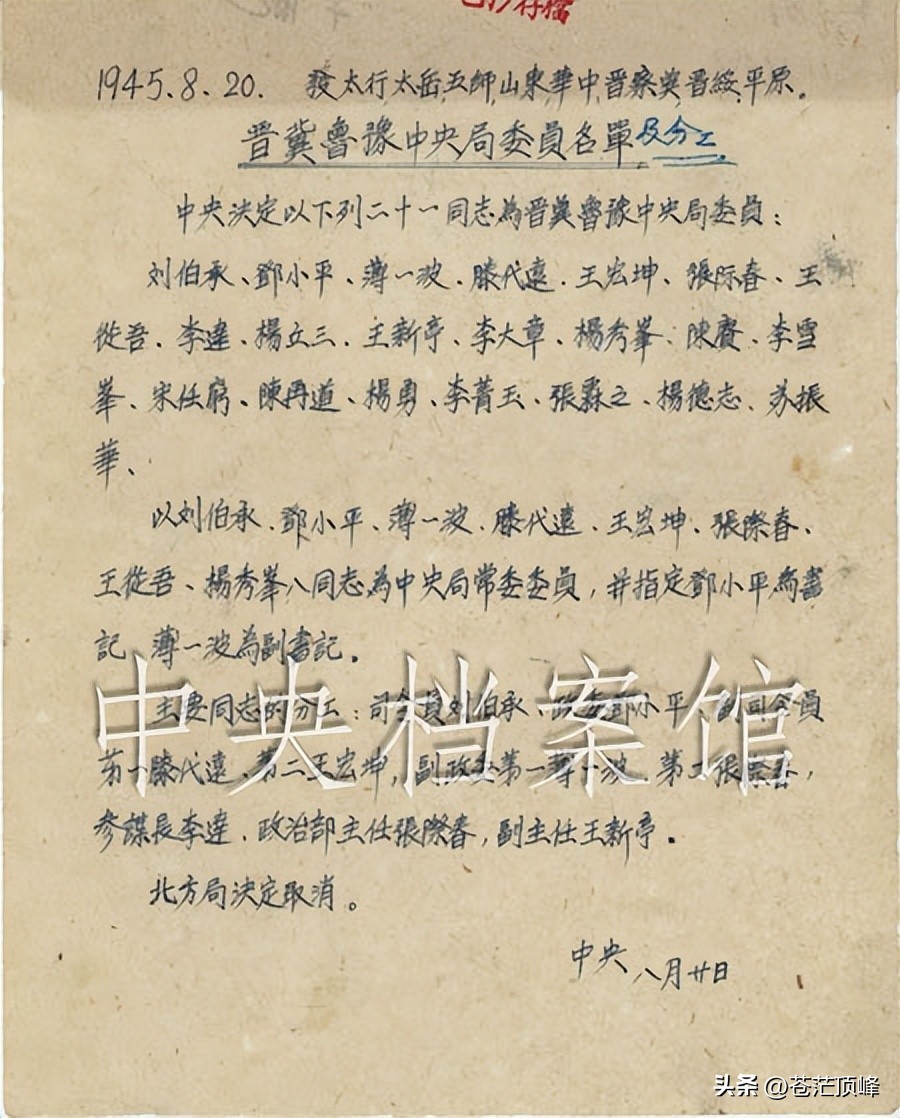 已抄存檔
1945.8.20. 發太行太岳五師山東華中晋察兾晋綏平原。
晋兾魯豫中央局委員名單及分工
中央決定以下列二十一同志為晋兾魯豫中央局委員：
刘伯承、鄧小平、薄一波、滕代遠、王宏坤、張际春、王
從吾、李達、楊立三、王新亭、李大章、楊秀峯、陳賡、李雪
峯、宋任窮、陳再道、楊勇、李菁玉、張霖之、楊德志、苏振
華、
以刘伯承、鄧小平、薄一波、滕代遠、王宏坤、張際春、
王從吾、楊秀峯八同志為中央局常委委員，并指定鄧小平為書
記 薄一波為副書記。
主要同志的分工：司令員刘伯承、政委鄧小平、副司令員
第一滕代遠、第二王宏坤，副政委第一薄一波、第二張際春，
参謀長李達、政治部主任張際春，副主任王新亭。
北方局決定取消。
中央 八月廿日
中央档案馆
头条 @苍茫顶峰